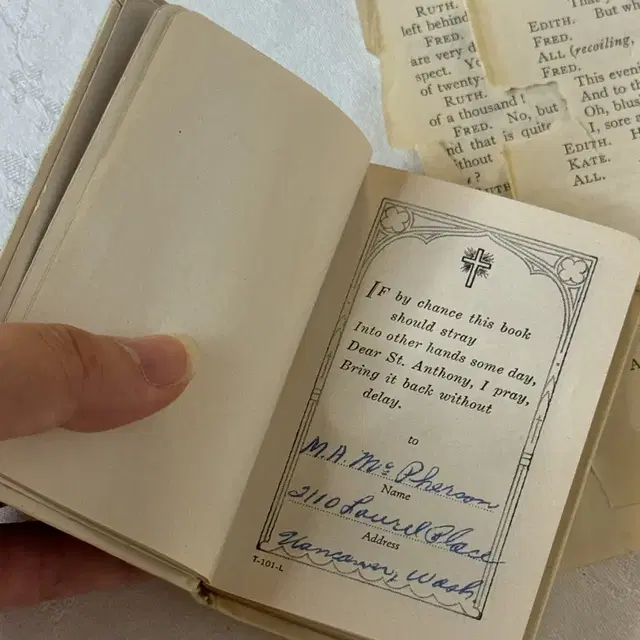 IF by chance this book
should stray
Into other hands some day,
Dear St. Anthony, I pray,
Bring it back without
delay.
to
M.A. Mc Pherson
Name
2110 Laurel Place
Address
Vancouver, Wash
7-101-L
RUTH.
left behind
FRED.
are very d
spect. Yo
of twenty
RUTH.
of a thousand
FRED. No, but
nd that is quite
ithout
?
EDITH. But wh
FRED.
ALL (recoiling,
FRED.
This eveni
And to th
Oh, blus
I, sore a
EDITH. H
KATE.
ALL.